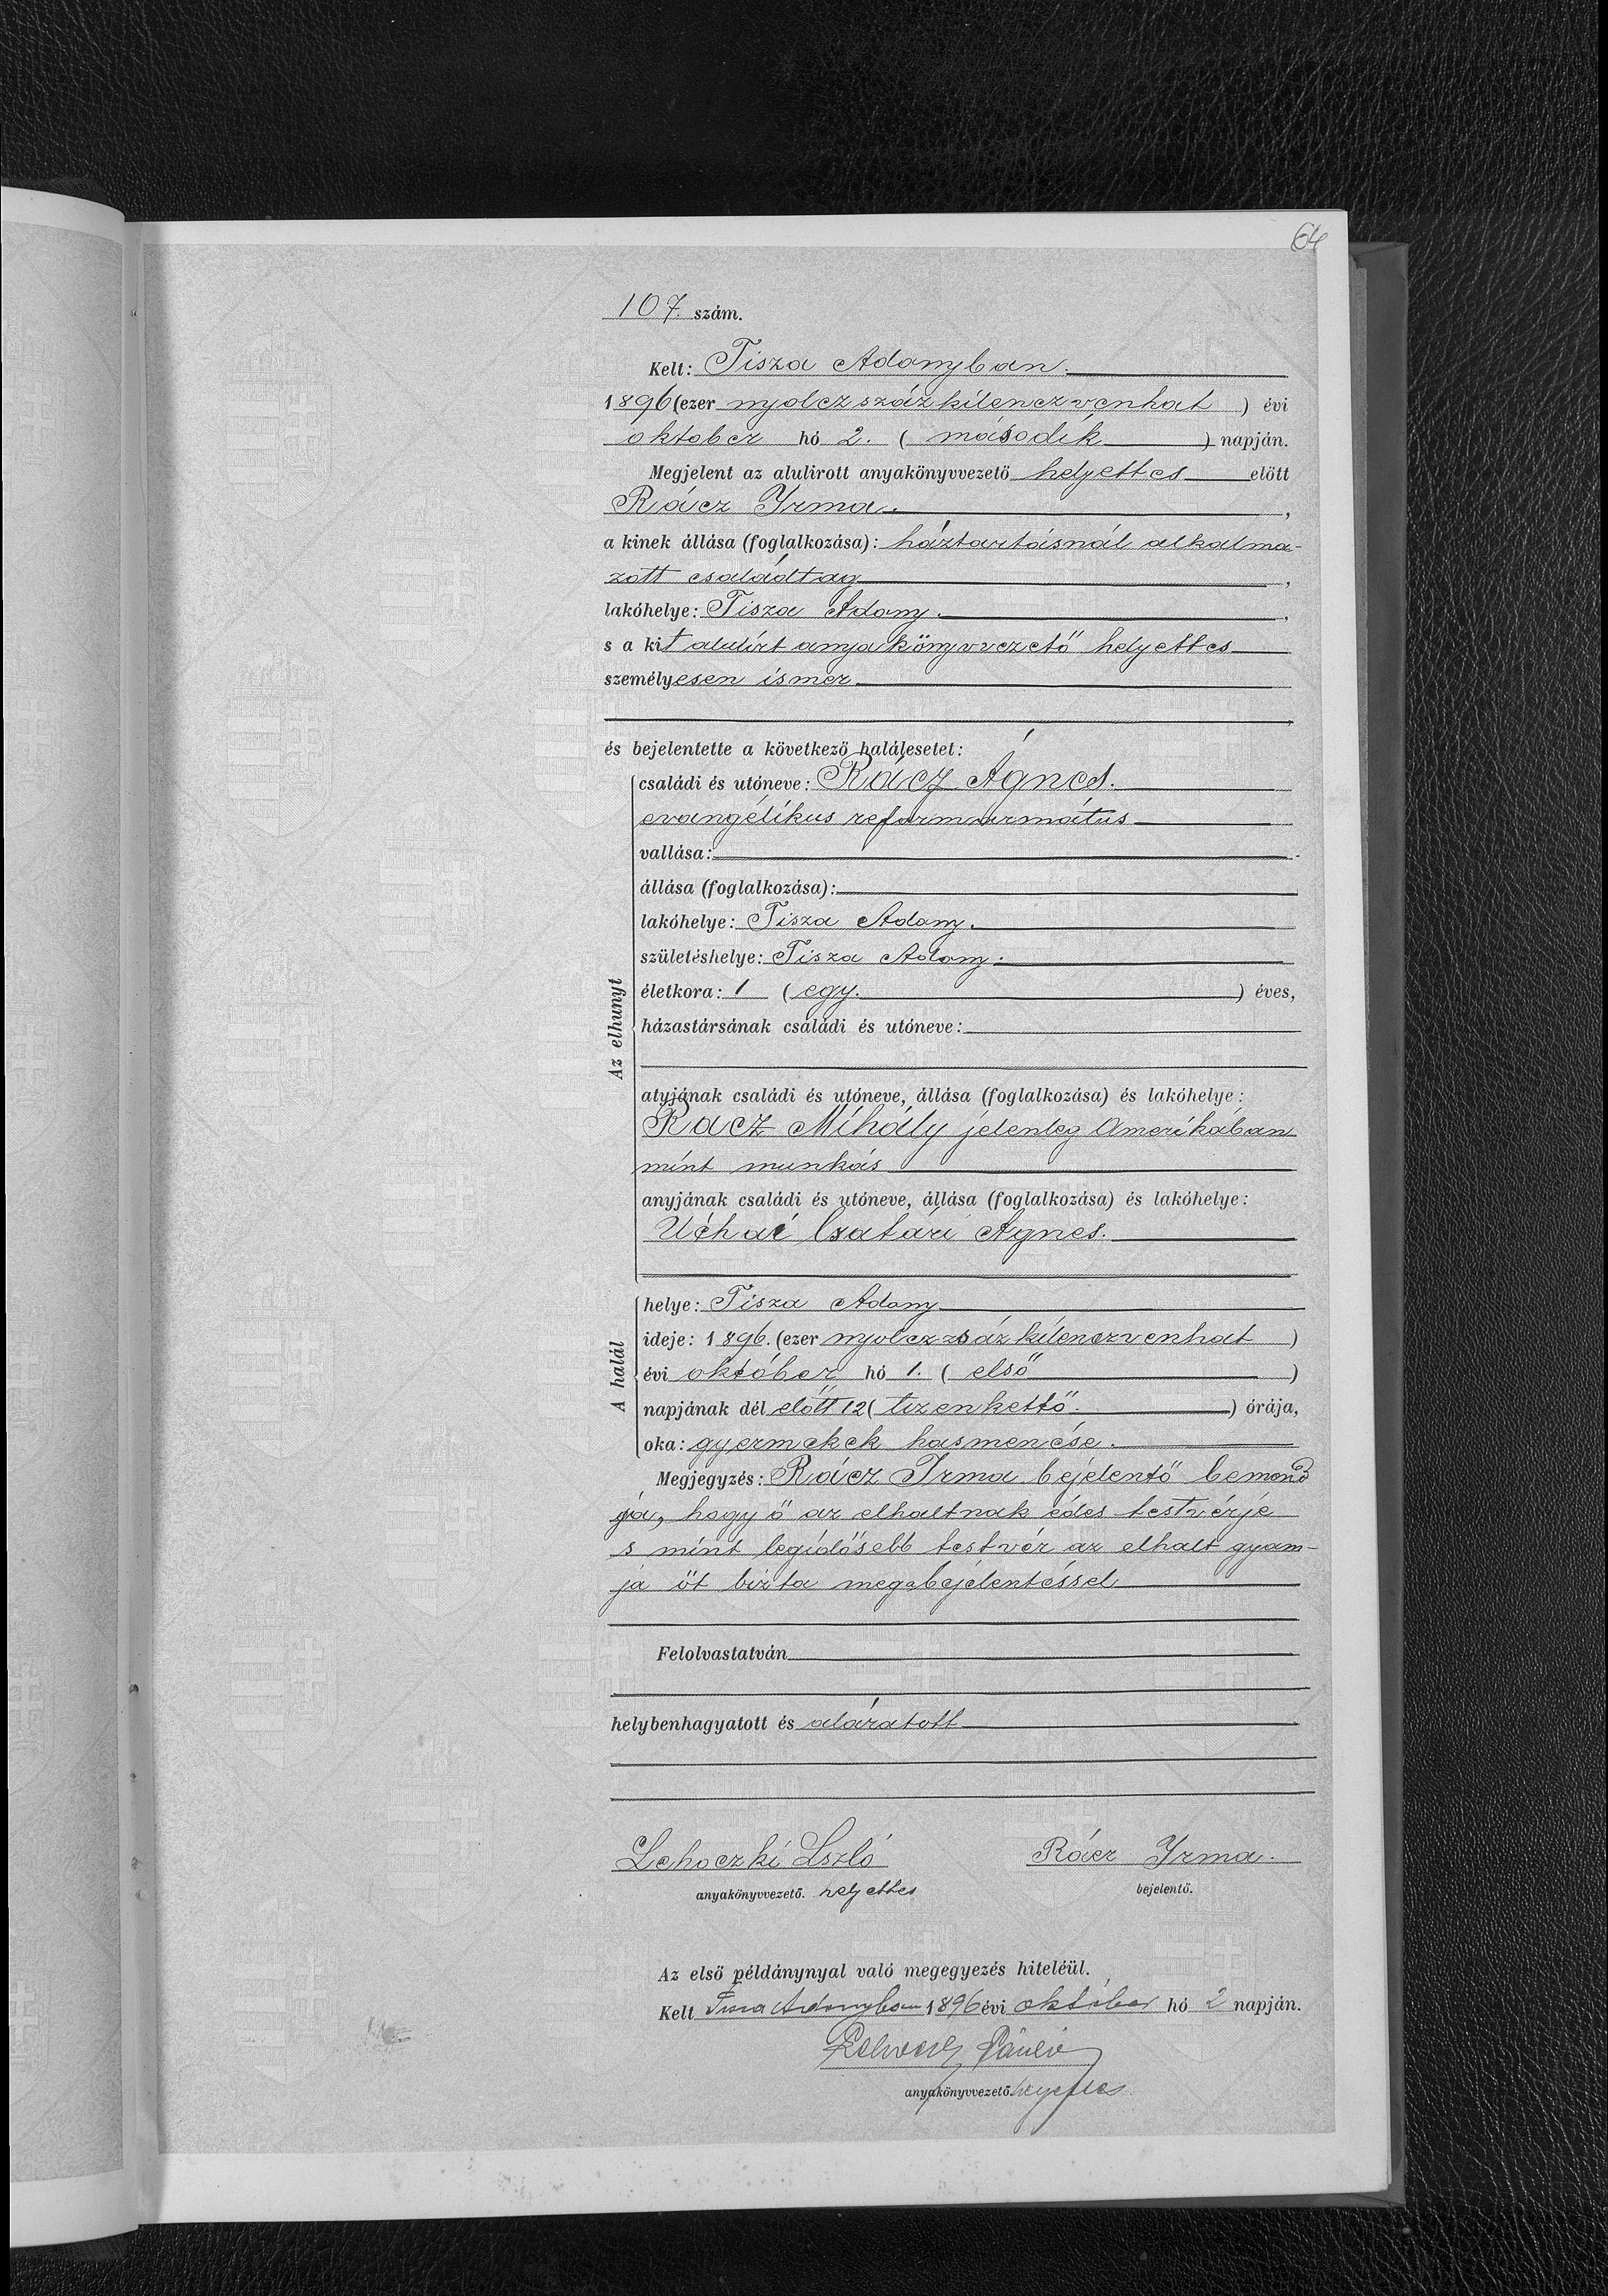 64
107. szám.
Kelt: Tisza Adonyban.
1896 (ezer nyolczszázkilenczvenhat ) évi
oktober hó 2. ( második ) napján.
Megjelent az alulirott anyakönyvvezető helyettes előtt
Rácz Irma.,
a kinek állása (foglalkozása): háztartásnál alkalma-
zott családtag,
lakóhelye: Tisza Adony.,
s a kit alulírt anyakönyvvezető helyettes
személyesen ismer.
és bejelentette a következő halálesetet:
Az elhunyt
családi és utóneve: Rácz Ágnes.
evangélikus
vallása:
állása (foglalkozása):
lakóhelye: Tisza Adony.
születéshelye: Tisza Adony.
életkora: 1 (egy.) éves,
házastársának családi és utóneve:
atyjának családi és utóneve, állása (foglalkozása) és lakóhelye:
Rácz Mihály jelenleg Amerikában
mint munkás
anyjának családi és utóneve, állása (foglalkozása) és lakóhelye:
Csatári Ágnes.
A halál
helye: Tisza Adony
ideje: 1896. (ezer kilenczvenhat )
évi október hó 1. ( első )
napjának dél előtt 12 ( tizenkettő. ) órája,
oka: gyermekek hasmenése.
Megjegyzés: Rácz Irma bejelentő bemond
ja, hogy ő az elhaltnak édes testvérje
s mint legidősebb testvér az elhalt gyam-
ja őt bizta meg a bejelentéssel
Felolvastatván
helybenhagyatott és aláratott
Lehoczki Lszló
Rácz Irma.
anyakönyvvezető. helyettes
bejelentő.
Az első példánynyal való megegyezés hiteléül.
Kelt Tisza Adonyban 1896 évi október hó 2 napján.
anyakönyvvezető. helyettes